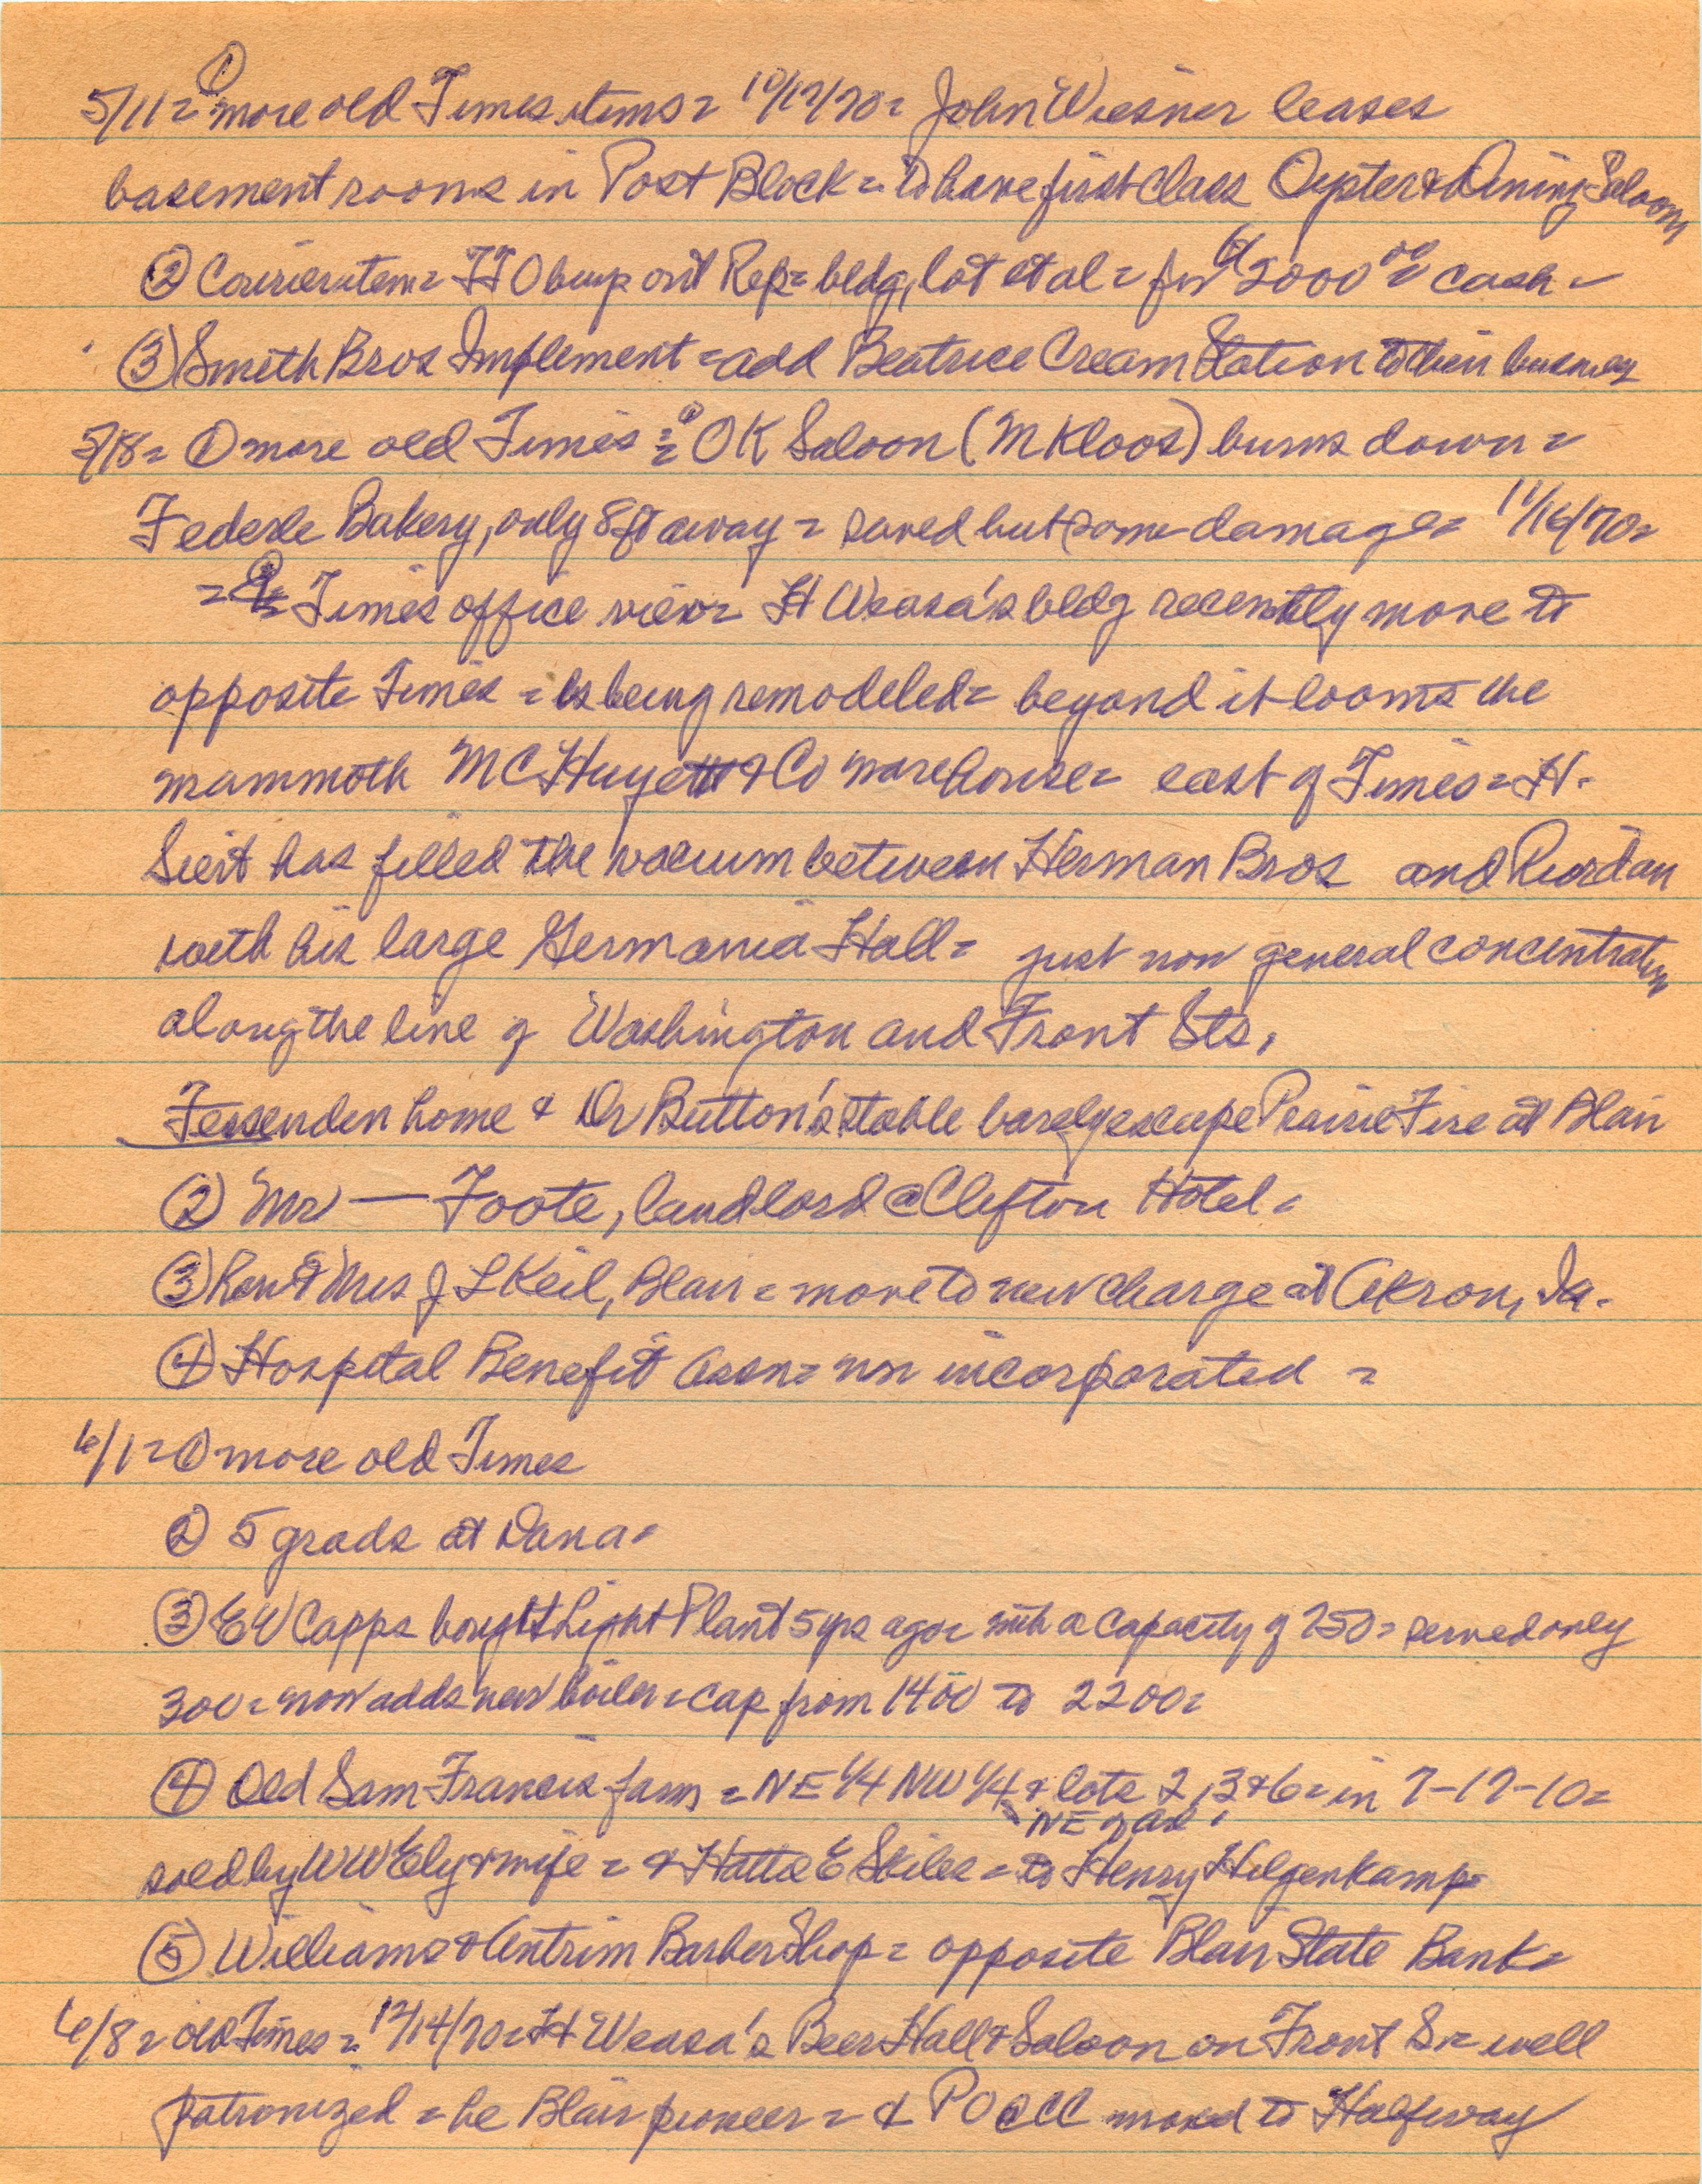 5/11= ① more old Times items= 10/12/70= John Wiesner leases
basement rooms in Post Block = to have first class Oyster & Dining Saloon
② Courier item= buys out Rep= bldg, lot et al = for 2000 00 cash =
③ Smith Bros Implement = add Beatrice Cream Station to their business
5/18= ① more old Times = OK Saloon (M Kloos) burns down =
Federle Bakery, only 8 ft away = saved but some damage= 11/16/70=
= Times office view= H Weasa's bldg recently move to
opposite Times = is being remodeled= beyond it looms the
mammoth MC Huyett & Co warehouse= east of Times = H.
Siert has filled the vacuum between Herman Bros and Riordan
with his large Germania Hall= just now general concentration
along the line of Washington and Front Sts,
Fessenden home & Dr Button's stable barely escape Prairie Fire at Blair
② Mr — Foote, landlord @ Clifton Hotel =
③ Rev & Mrs J L Keil, Blair = move to new charge at Akron, Ia.
④ Hospital Benefit Assn= now incorporated =
6/1= ① more old Times
② 5 grads at Dana=
③ E W Capps bought Light Plant 5 yrs ago= with a capacity of 750= served only
300= now adds new boiler = cap from 1400 to 2200=
④ Old Sam Francis farm = NE 1/4 NW 1/4 & lots 2, 3 & 6= in 7-17-10=
NE
sold by WW Ely & wife = & Hattie E Skiles = to Henry Hilgenkamp=
⑤ Williams & Antrim Barber Shop = opposite Blair State Bank=
6/8= old Times = 12/14/70= H Weasa's Beer Hall & Saloon on Front St= well
patronized = he Blair pioneer = & PO @ CC moved to Halfway